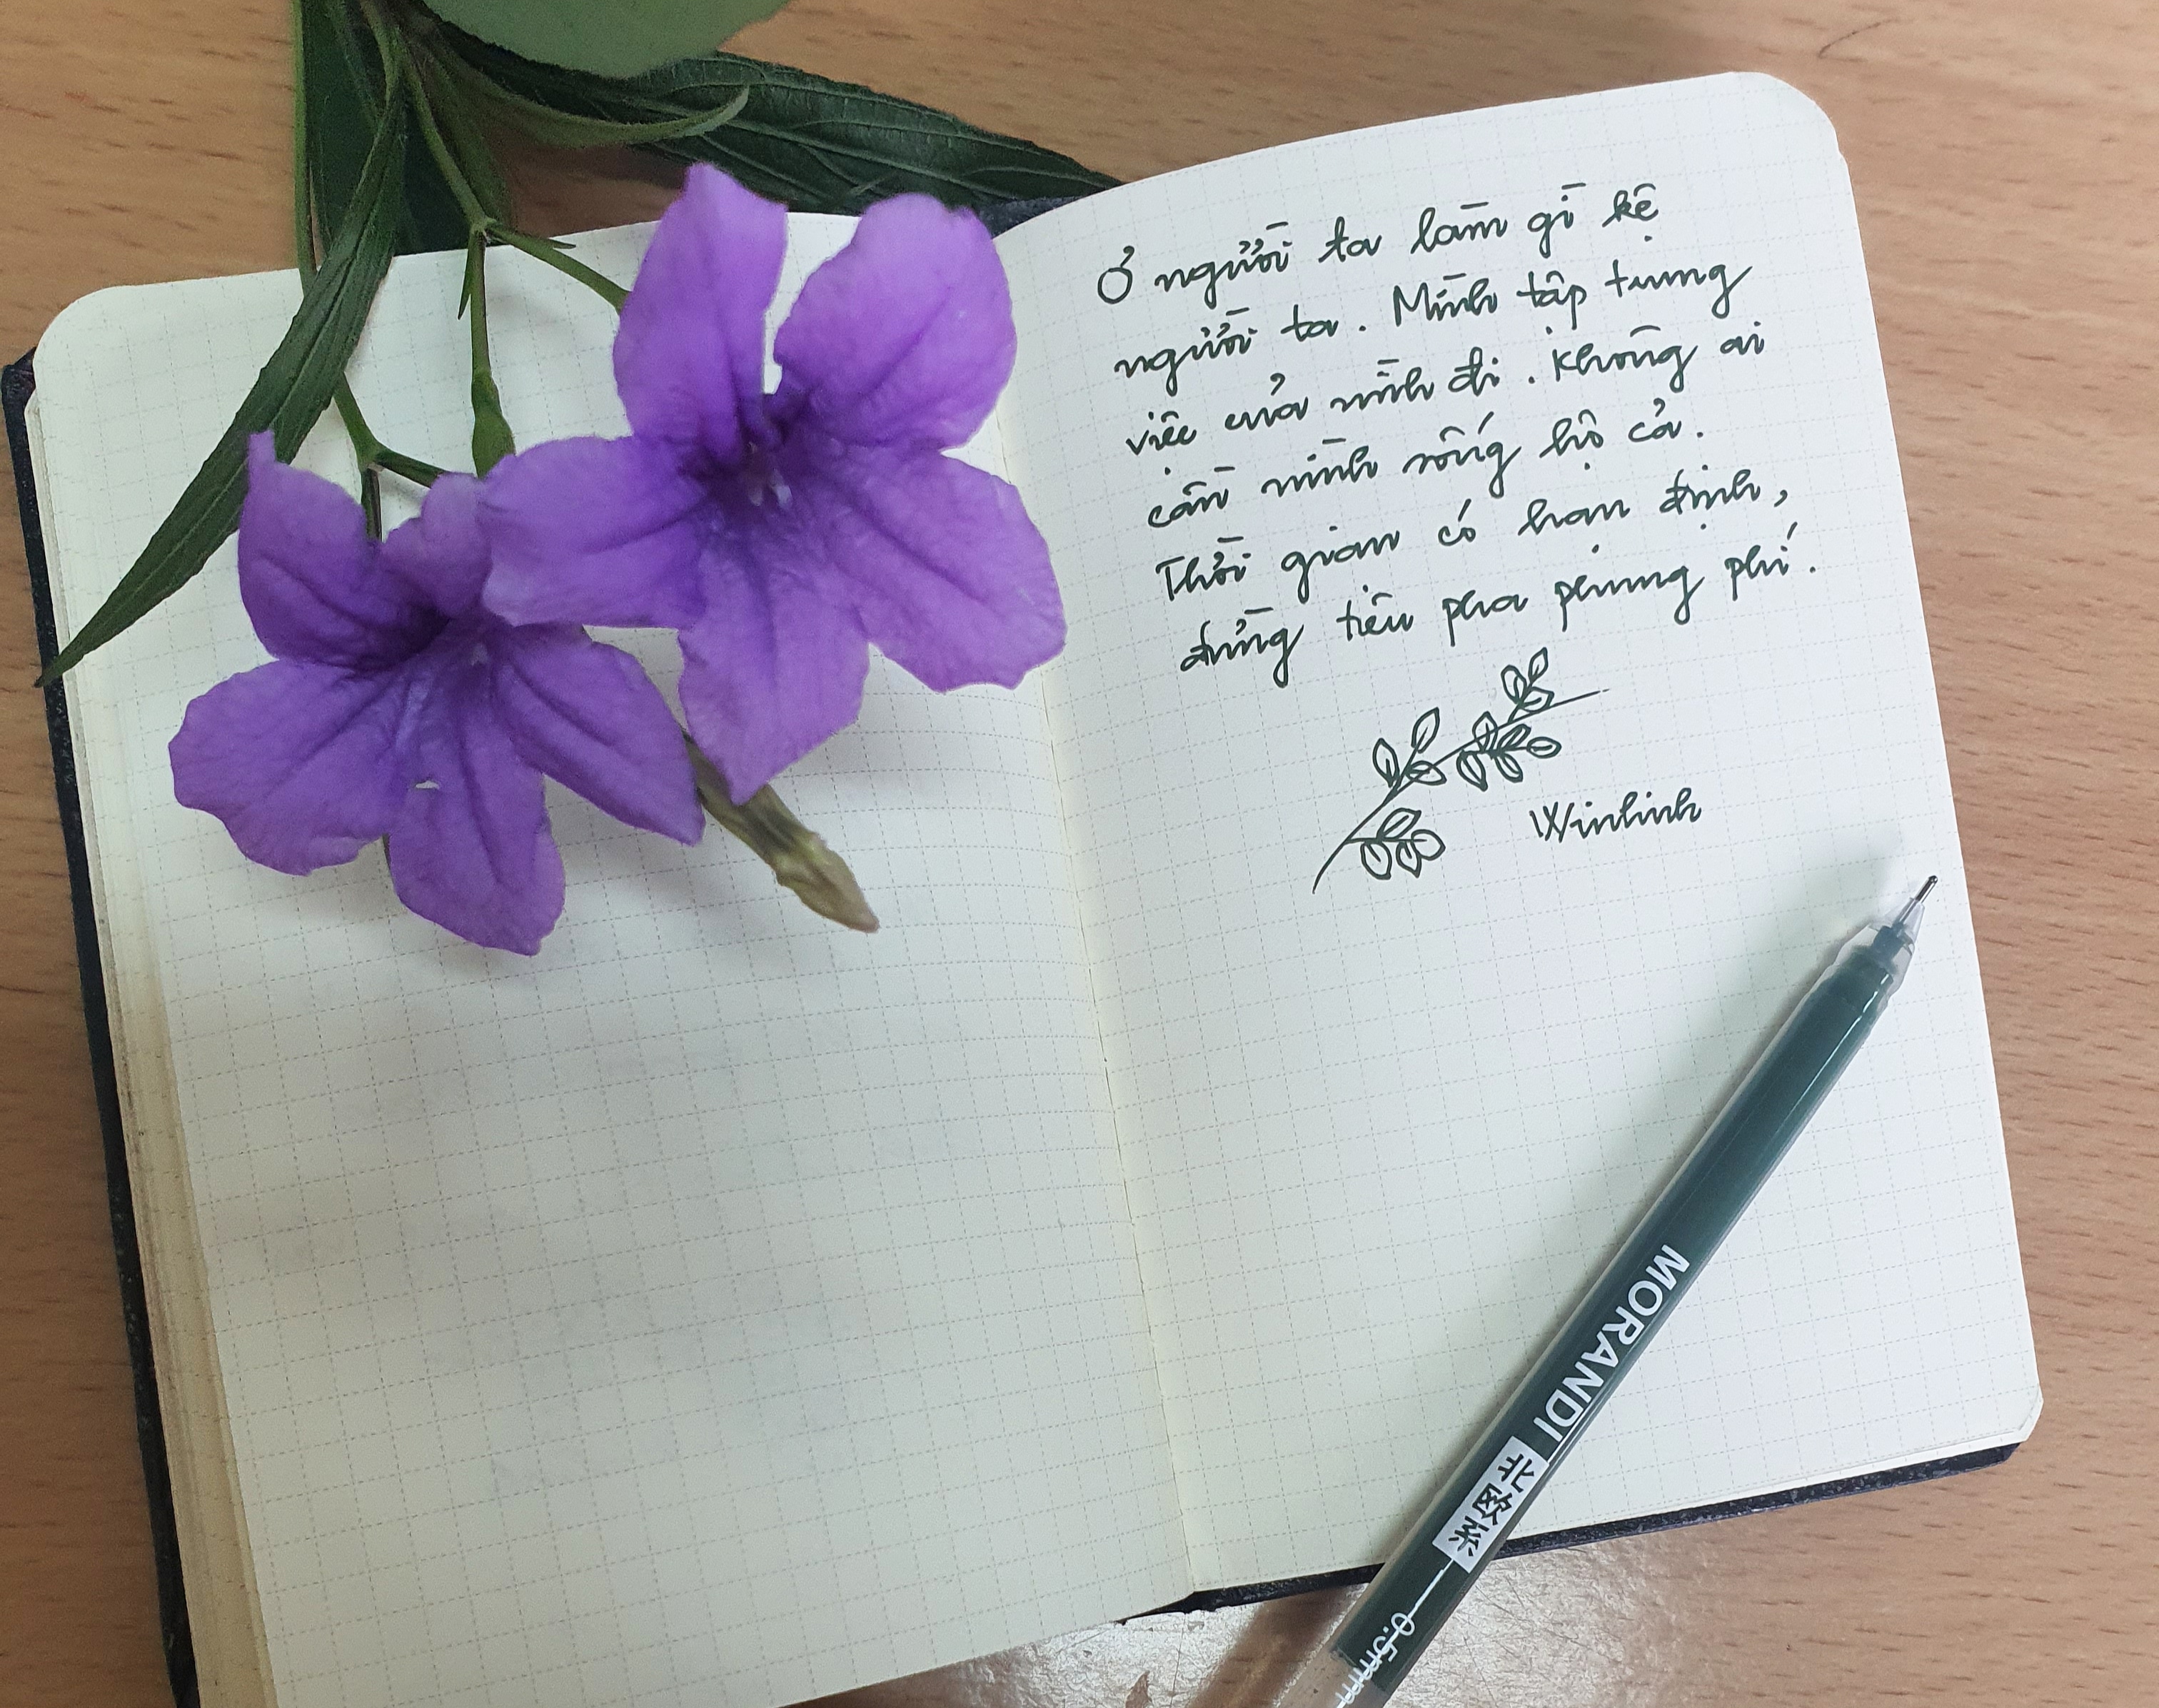 Ở người ta làm gì kệ
người ta. Mình tập trung
việc của mình đi. Không ai
cần mình sống hộ cả.
Thời gian có hạn định,
đừng tiêu pha phung phí.
Winlinh
MORANDI 北欧系
0.5mm